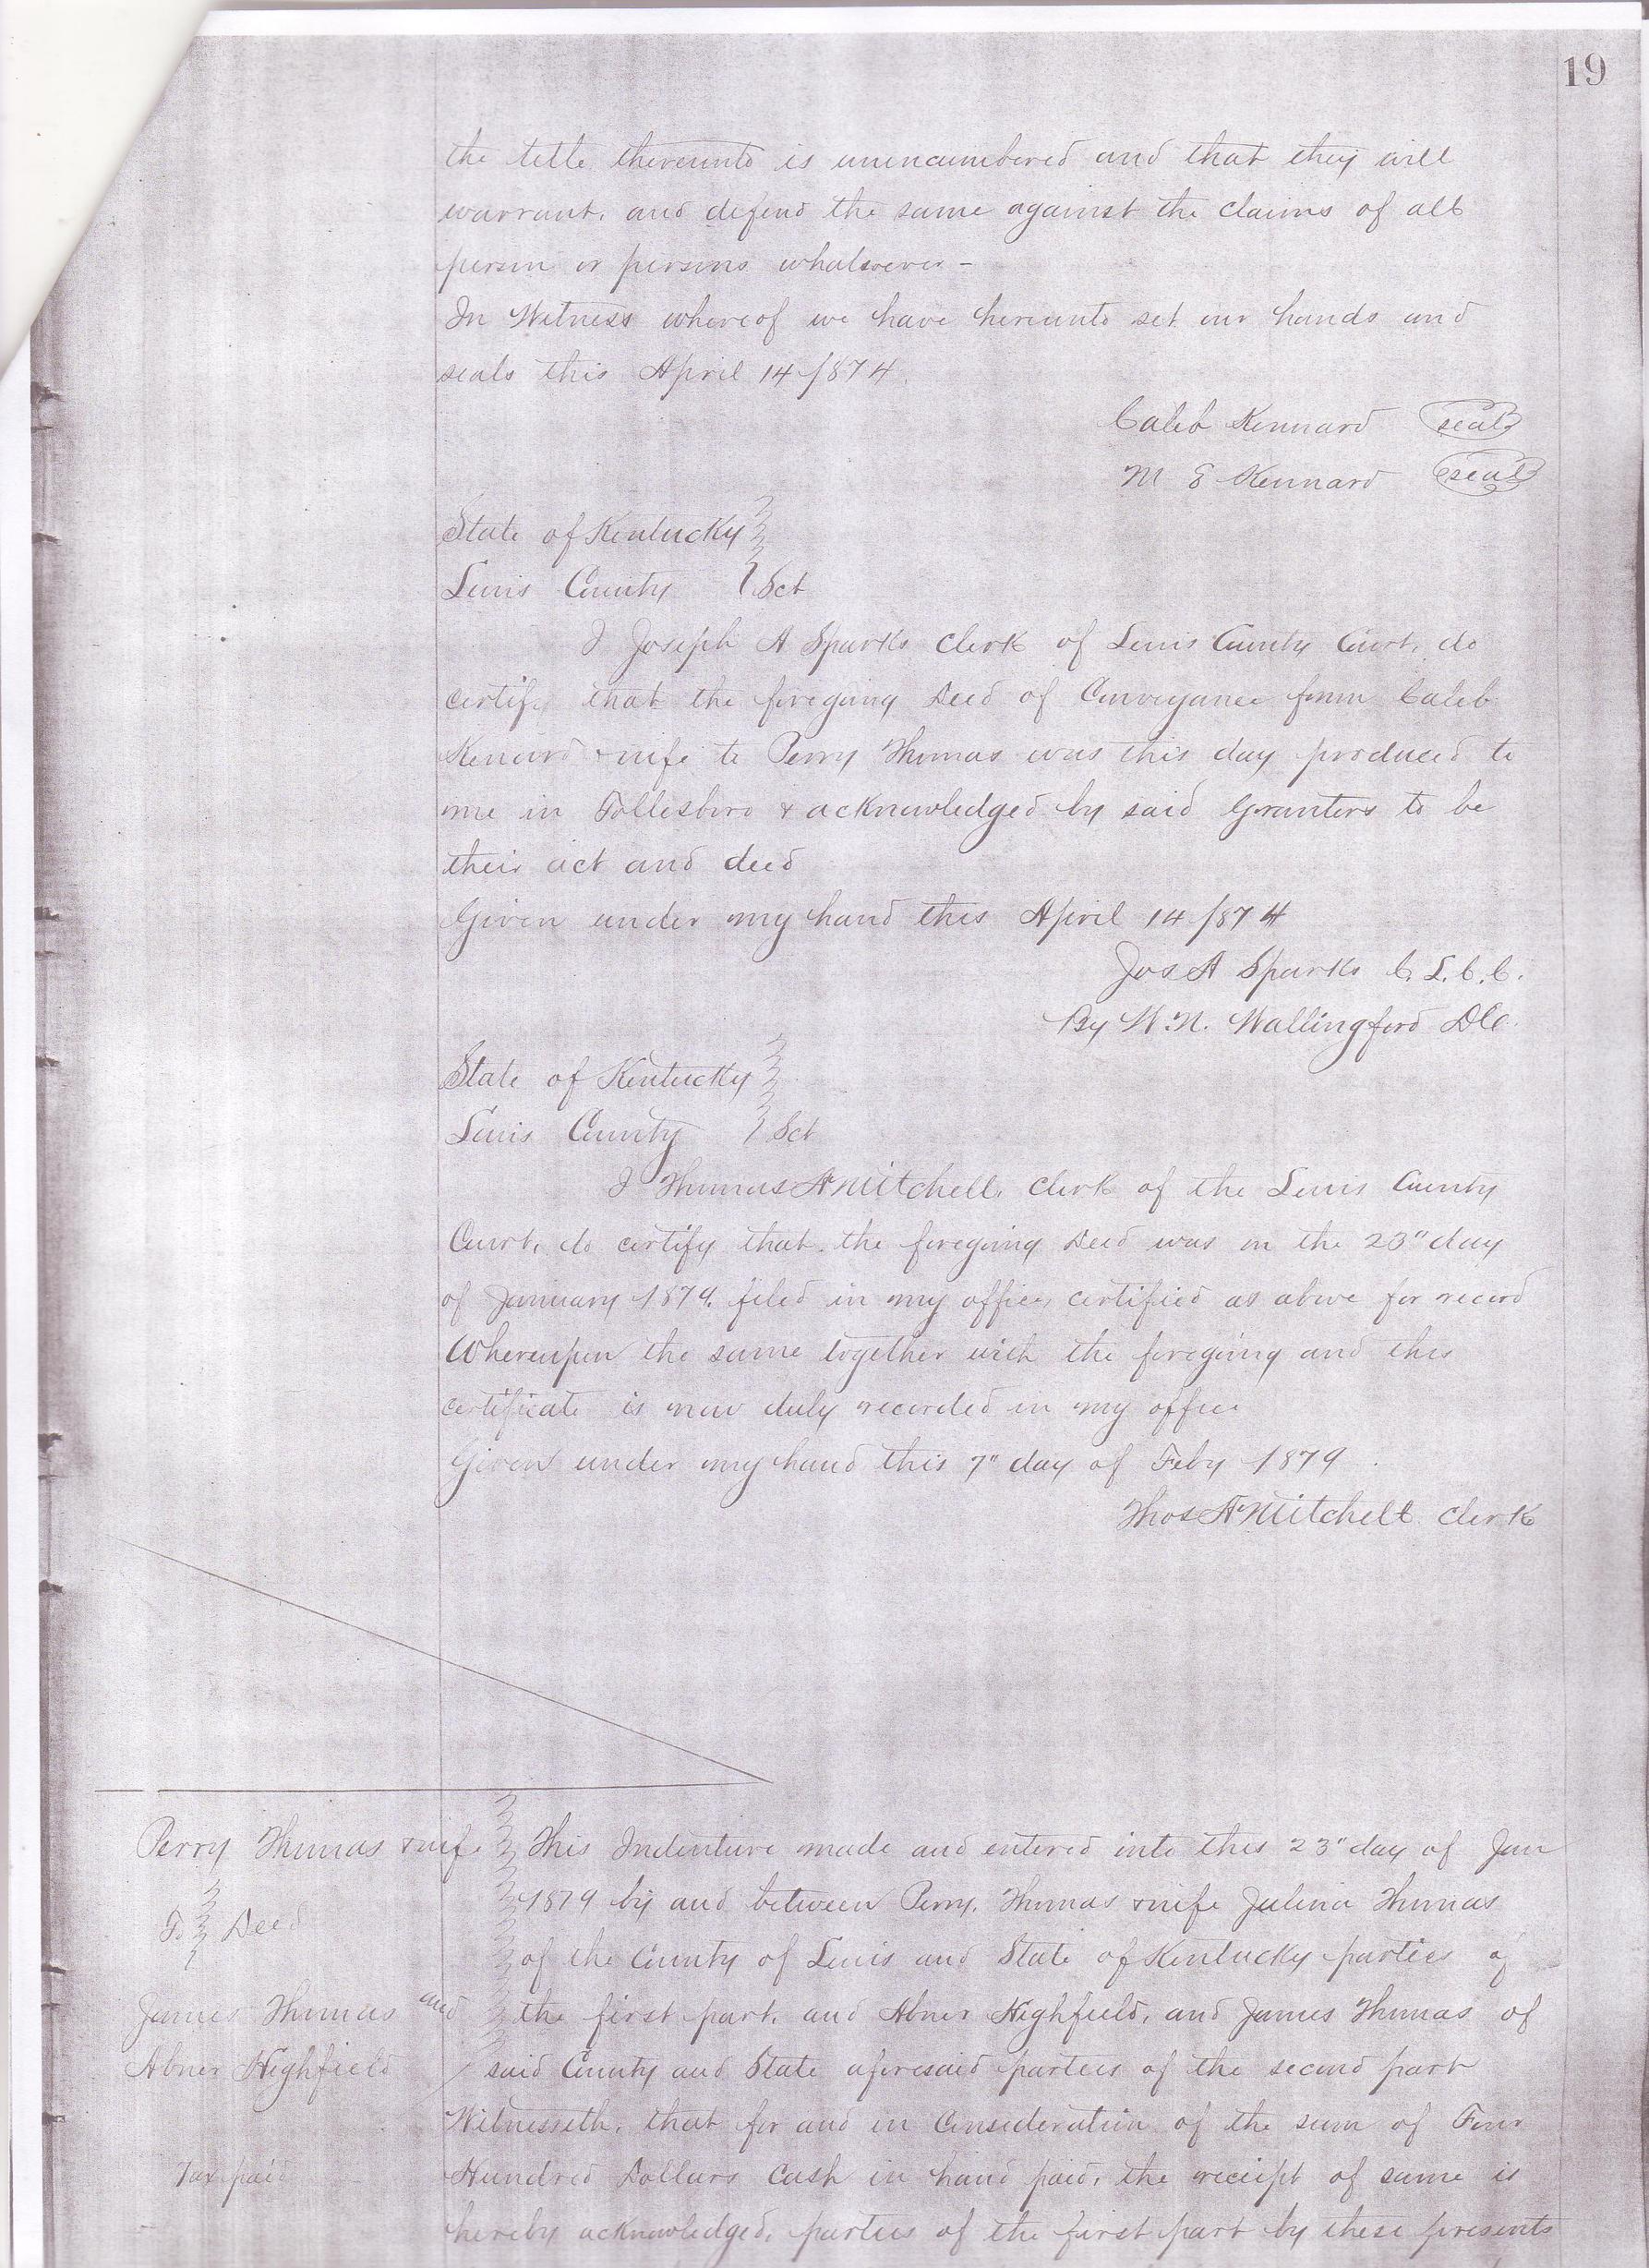 19
the title thereunto is unencumbered and that they will
warrant, and defend the same against the claims of all
person or persons whatsoever -
In Witness whereof we have hereunto set our hands and
seals this April 14 1874.
Caleb Kennard seal
M E Kennard seal
State of Kentucky
Lewis County Sct
I Joseph A Sparks Clerk of Lewis County Court, do
certify that the foregoing Deed of Conveyance from Caleb
Kenard & wife to Perry Thomas was this day produced to
me in Tollesboro & acknowledged by said Grantors to be
their act and deed
Given under my hand this April 14 1874
Jos A Sparks C. L. C. C.
By W. N. Wallingford D.C.
State of Kentucky
Lewis County Sct
I Thomas A Mitchell, Clerk of the Lewis County
Court, do certify that the foregoing Deed was on the 23" day
of January 1879, filed in my office, certified as above for record
Whereupon the same together with the foregoing and this
certificate is now duly recorded in my office
Given under my hand this 7" day of Feby 1879.
Thos A Mitchell Clerk
Perry Thomas & wife
To Deed
James Thomas and
Abner Highfield
Tax paid
This Indenture made and entered into this 23" day of Jan
1879 by and between Perry Thomas & wife Julina Thomas
of the County of Lewis and State of Kentucky parties of
the first part, and Abner Highfield, and James Thomas of
said County and State aforesaid parties of the second part
Witnesseth, that for and in Consideration of the sum of Four
Hundred Dollars Cash in hand paid, the reciept of same is
hereby acknowledged, parties of the first part by these presents